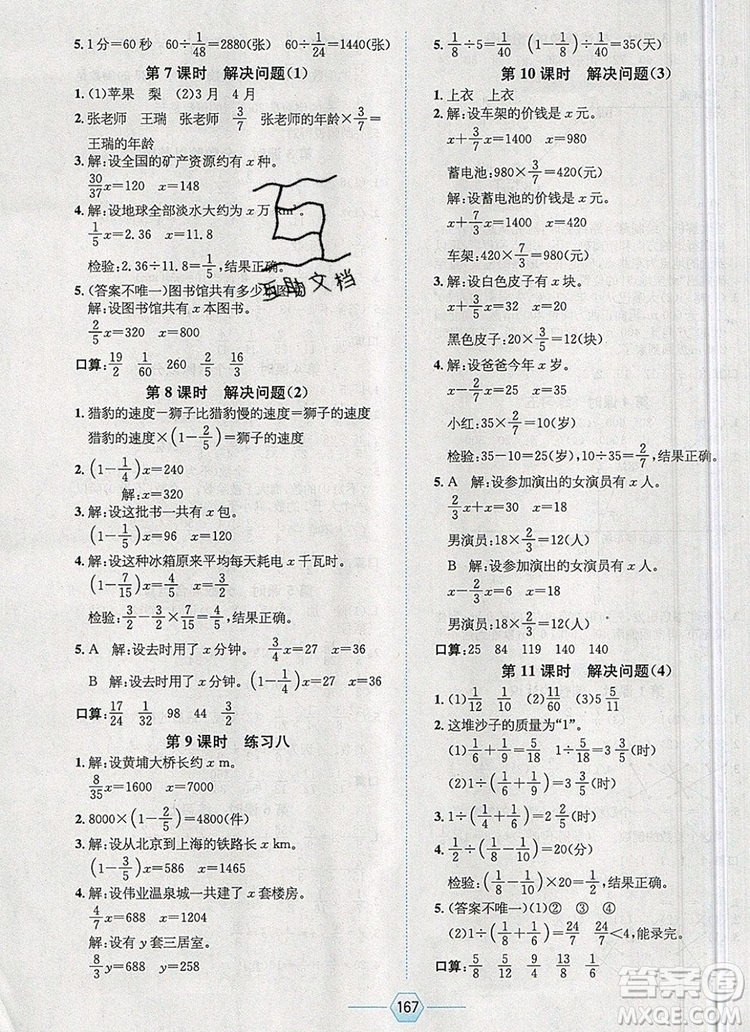 5. 1分=60秒 60÷1/48=2880(张) 60÷1/24=1440(张)
第7课时 解决问题(1)
1. (1)苹果 梨 (2)3月 4月
2. 张老师 王瑞 张老师 3/7 张老师的年龄×3/7=
王瑞的年龄
3. 解:设全国的矿产资源约有x种。
30/37x=120 x=148
4. 解:设地球全部淡水大约为x万km³。
1/5x=2.36 x=11.8
检验:2.36÷11.8=1/5,结果正确。
5. (答案不唯一)图书馆共有多少本图书?
解:设图书馆共有x本图书。
2/5x=330 x=825
口算:19/2 1/60 260 2/5 16/3
第8课时 解决问题(2)
1. 猎豹的速度-狮子比猎豹慢的速度=狮子的速度
猎豹的速度×(1-2/5)=狮子的速度
2. (1-1/4)x=240
解:x=320
3. 解:设这批书一共有x包。
(1-1/5)x=96 x=120
4. 解:设这种冰箱原来平均每天耗电x千瓦时。
(1-7/15)x=4/5 x=3/2
检验:(3/2-4/5)÷3/2=7/15,结果正确。
5. A 解:设去时用了x分钟。 3/4x=27 x=36
B 解:设去时用了x分钟。(1-1/4)x=27
x=36
口算:17/24 1/32 98 9 44
第9课时 练习八
1. 解:设黄埔大桥长约x m。
8/35x=1600 x=7000
2. 8000×(1-2/5)=4800(件)
3. 解:设从北京到上海的铁路长x km。
(1-3/5)x=586 x=1465
4. 解:设伟业温泉城一共建了x套楼房。
4/7x=688 x=1204
解:设有y套三居室。
8/3y=688 y=258
5. 1/5÷5=1/10 (1-1/8)÷1/40=35(天)
第10课时 解决问题(3)
1. 上衣 上衣
2. 解:设车架的价钱是x元。
x+3/7x=1400 x=980
蓄电池:980×3/7=420(元)
解:设蓄电池的价钱是x元。
x+7/3x=1400 x=420
车架:420×7/3=980(元)
3. 解:设白色皮子有x块。
x+3/5x=32 x=20
黑色皮子:20×3/5=12(块)
4. 解:设爸爸今年x岁。
x-2/7x=25 x=35
小红:35×2/7=10(岁)
检验:35-10=25(岁),10÷35=2/7,结果正确。
5. A 解:设参加演出的女演员有x人。
x+2/3x=30 x=18
男演员:18×2/3=12(人)
B 解:设参加演出的女演员有x人。
x-2/3x=6 x=18
男演员:18×2/3=12(人)
口算:25 84 119 140 140
第11课时 解决问题(4)
1. (1)1/12 1/10 (2)11/60 (3)5 5/11
2. 这堆沙子的质量为“1”。
(1)1/6+1/9=5/18 1÷5/18=18/5(时)
(2)1÷(1/6+1/9)=18/5(时)
3. 1÷(1/4+1/5)=20/9(时)
4. 1/2÷(1/8-1/10)=20(分)
检验:(1/8-1/10)×20=1/2,结果正确。
5. (答案不唯一)(1)② ③ ④
(2)1÷(1/8+1/6)=24/7(时) 24/7<4,能录完。
口算:1/8 18 2/3 3/4 2/9
互助文档
167
答案圈
MXQE.COM